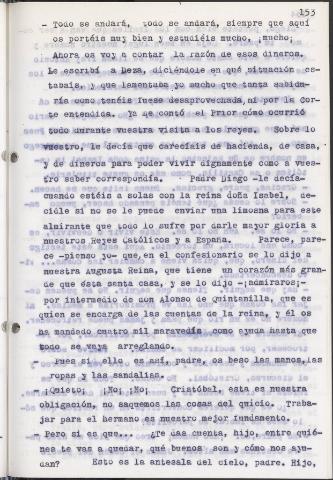 153
- Todo se andará, todo se andará, siempre que aquí
os portéis muy bien y estudiéis mucho, ¡mucho¡
Ahora os voy a contar la razón de esos dineros.
Le escribí a Deza, diciéndole en qué situación es-
tabais, y que lamentaba yo mucho que tanta sabidu-
ría como tenéis fuese desaprovechada, ni por la Cor-
te entendida. Ya me contó el Prior cómo ocurrió
todo durante vuestra visita a los reyes. Sobre lo
vuestro, le decía que carecíais de hacienda, de casa,
y de dineros para poder vivir dignamente como a vues-
tro saber correspondía. Padre Diego -le decía-
cuando estéis a solas con la reina doña Isabel, de-
cidle si no se le puede enviar una limosna para este
almirante que todo lo sufre por darle mayor gloria a
nuestros Reyes Católicos y a España. Parece, pare-
ce -pienso yo- que, en el confesionario se lo dijo a
nuestra Augusta Reina, que tiene un corazón más gran-
de que ésta santa casa, y se lo dijo -¡admiraros¡-
por intermedio de don Alonso de Quintanilla, que es
quien se encarga de las cuentas de la reina, y él os
ha mandado cuatro mil maravedís como ayuda hasta que
todo se vaya arreglando.
- Pues si ello es así, padre, os beso las manos, las
ropas y las sandalias.
- ¡Quieto¡ ¡No¡ ¡No¡ Cristóbal, esta es nuestra
obligación, no saquemos las cosas del quicio. Traba-
jar para el hermano es nuestro mejor fundamento.
- Pero si es que... ¿Te das cuenta, hijo, entre quié-
nes te vas a quedar, qué buenos son y cómo nos ayu-
dan? Esto es la antesala del cielo, padre. Hijo,